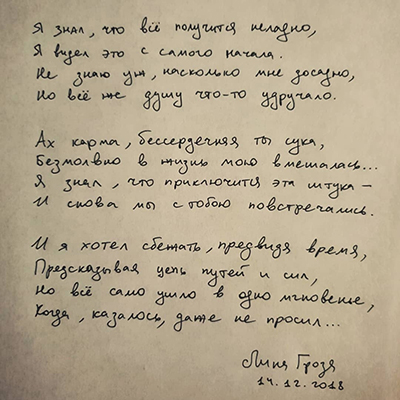 Я знал, что всё получится неладно,
Я видел это с самого начала.
Не знаю уж, насколько мне досадно,
Но всё же душу что-то удручало.
Ах карма, бессердечная ты сука,
Безмолвно в жизнь мою вмешалась...
Я знал, что приключится эта штука –
И снова мы с тобою повстречались.
И я хотел сбежать, предвидя время,
Предсказывая цепь путей и сил,
Но всё само ушло в одно мгновенье,
Когда, казалось, даже не просил...
Лина Гроза
14.12.2018